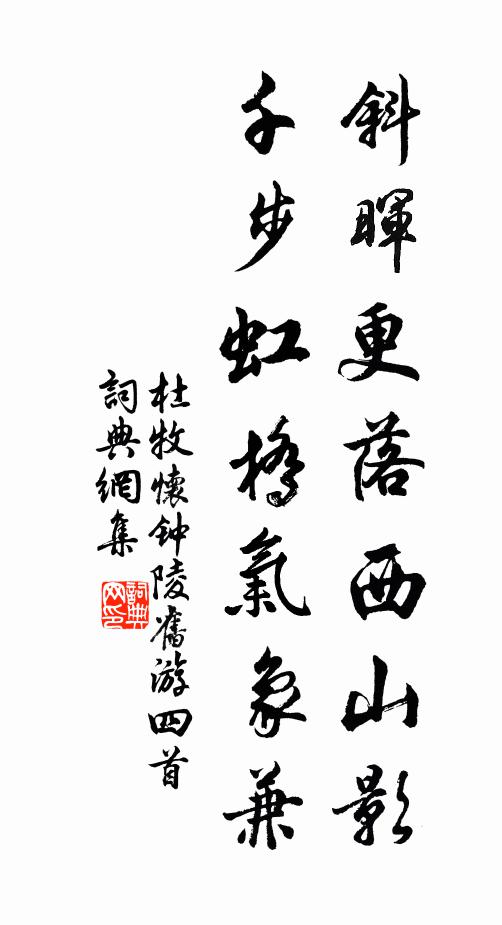 斜暉更落西山影
千步虹橋氣象兼
杜牧懷鈡陵舊游四首
詞典網集
詞典網印